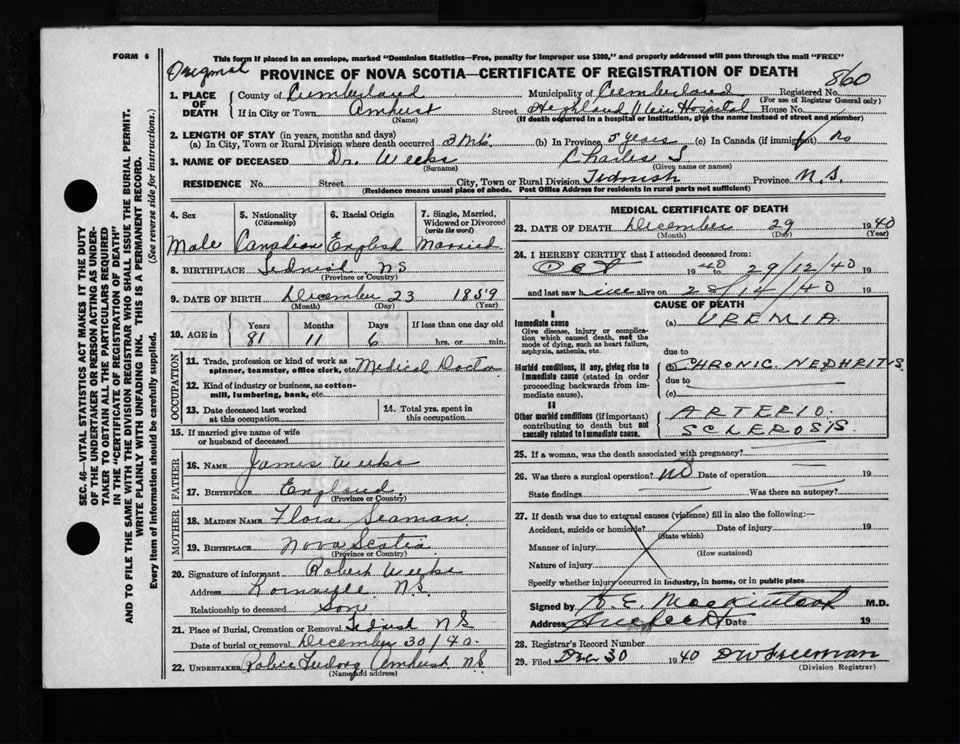 FORM 6
This form if placed in an envelope, marked "Dominion Statistics—Free, penalty for improper use $300," and properly addressed will pass through the mail "FREE"
Original
PROVINCE OF NOVA SCOTIA—CERTIFICATE OF REGISTRATION OF DEATH
860
1. PLACE OF DEATH
County of Cumberland Municipality of Cumberland Registered No.
(For use of Registrar General only)
If in City or Town Amherst Street Highland View Hospital House No.
(Name) (If death occurred in a hospital or institution, give the name instead of street and number)
2. LENGTH OF STAY (in years, months and days)
(a) In City, Town or Rural Division where death occurred 3 Mts. (b) In Province 5 years (c) In Canada (if immigrant) No
3. NAME OF DECEASED Dr. Weeks Charles S
(Surname) (Given name or names)
RESIDENCE No. Street City, Town or Rural Division Tidnish Province N.S.
(Residence means usual place of abode. Post Office Address for residents in rural parts not sufficient)
4. Sex
Male
5. Nationality
(Citizenship)
Canadian
6. Racial Origin
English
7. Single, Married, Widowed or Divorced
(write the word)
Married
8. BIRTHPLACE Tidnish NS
(Province or Country)
9. DATE OF BIRTH December 23 1859
(Month) (Day) (Year)
10. AGE in
Years Months Days If less than one day old
81 11 6 hrs. or min.
OCCUPATION
11. Trade, profession or kind of work as spinner, teamster, office clerk, etc. Medical Doctor
12. Kind of industry or business, as cotton-mill, lumbering, bank, etc.
13. Date deceased last worked at this occupation
14. Total yrs. spent in this occupation
15. If married give name of wife or husband of deceased
FATHER
16. NAME James Weeks
17. BIRTHPLACE England
(Province or Country)
MOTHER
18. MAIDEN NAME Flora Seaman
19. BIRTHPLACE Nova Scotia
(Province or Country)
20. Signature of informant Robert Weeks
Address N.S.
Relationship to deceased Son
21. Place of Burial, Cremation or Removal Tidnish NS
Date of burial or removal December 30/40
22. UNDERTAKER Amherst NS
(Name and address)
MEDICAL CERTIFICATE OF DEATH
23. DATE OF DEATH December 29 1940
(Month) (Day) (Year)
24. I HEREBY CERTIFY that I attended deceased from:
Oct 1940 to 29/12/40 19
and last saw him alive on 28/12/40 19
CAUSE OF DEATH
I
Immediate cause
Give disease, injury or complication which caused death, not the mode of dying, such as heart failure, asphyxia, asthenia, etc.
(a) UREMIA
due to
Morbid conditions, if any, giving rise to immediate cause (stated in order proceeding backwards from immediate).
(b) CHRONIC NEPHRITIS.
due to
(c)
II
Other morbid conditions (if important) contributing to death but not causally related to immediate cause.
ARTERIO
SCLEROSIS
25. If a woman, was the death associated with pregnancy?
26. Was there a surgical operation? NO Date of operation 19
State findings Was there an autopsy?
27. If death was due to external causes (violence) fill in also the following:—
Accident, suicide or homicide? Date of injury 19
(State which)
Manner of injury
(How sustained)
Nature of injury
Specify whether injury occurred in industry, in home, or in public place
Signed by Mackintosh M.D.
Address Date 19
28. Registrar's Record Number
29. Filed Dec 30 1940 DW Freeman
(Division Registrar)
SEC. 46—VITAL STATISTICS ACT MAKES IT THE DUTY
OF THE UNDERTAKER OR PERSON ACTING AS UNDER-
TAKER TO OBTAIN ALL THE PARTICULARS REQUIRED
IN THE "CERTIFICATE OF REGISTRATION OF DEATH"
AND TO FILE THE SAME WITH THE DIVISION REGISTRAR WHO SHALL ISSUE THE BURIAL PERMIT.
WRITE PLAINLY WITH UNFADING INK. THIS IS A PERMANENT RECORD.
Every item of information should be carefully supplied. (See reverse side for instructions.)